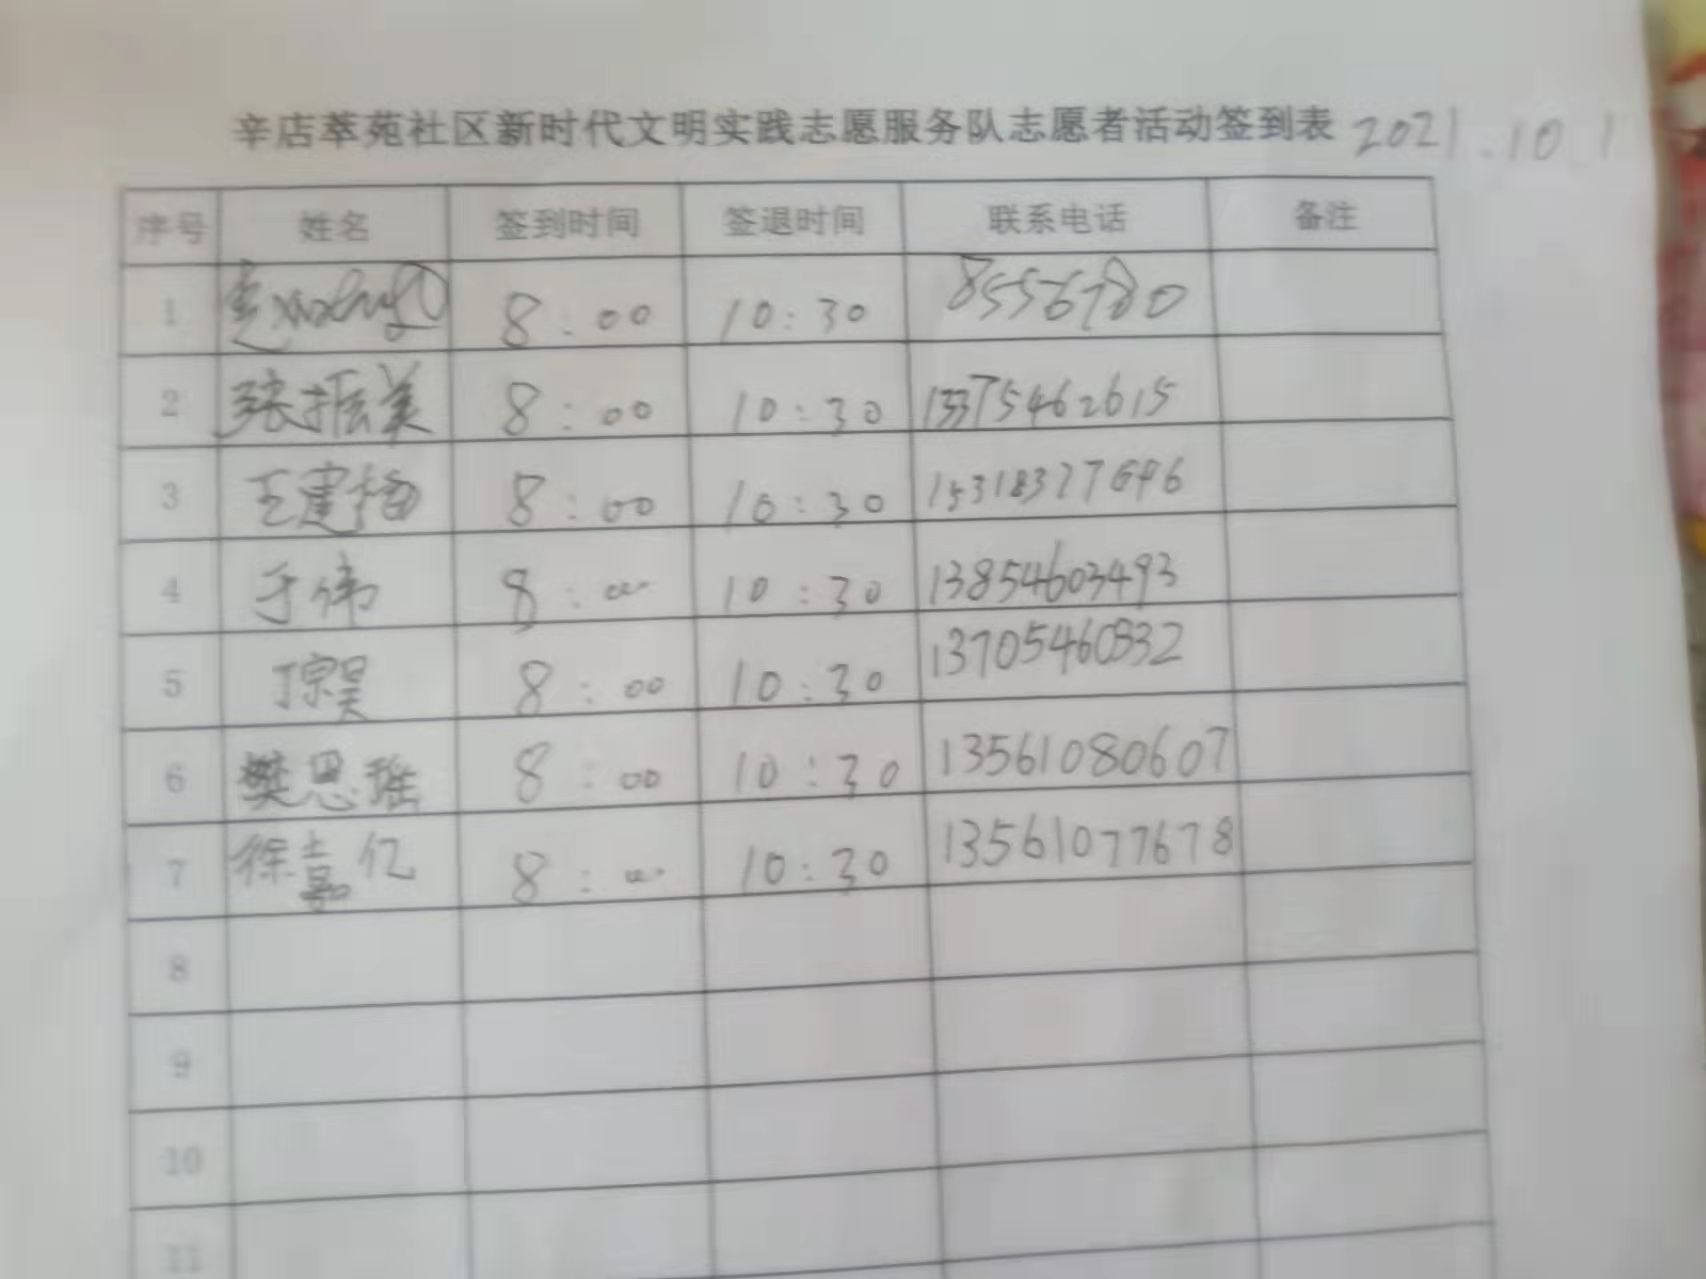 辛店萃苑社区新时代文明实践志愿服务队志愿者活动签到表 2021.10.1
序号 姓名 签到时间 签退时间 联系电话 备注
1 8:00 10:30 8556780
2 张振美 8:00 10:30 13375462615
3 王建梅 8:00 10:30 15318327696
4 于伟 8:00 10:30 13854603493
5 丁宗昊 8:00 10:30 13705460832
6 樊思瑶 8:00 10:30 13561080607
7 徐嘉亿 8:00 10:30 13561077678
8
9
10
11